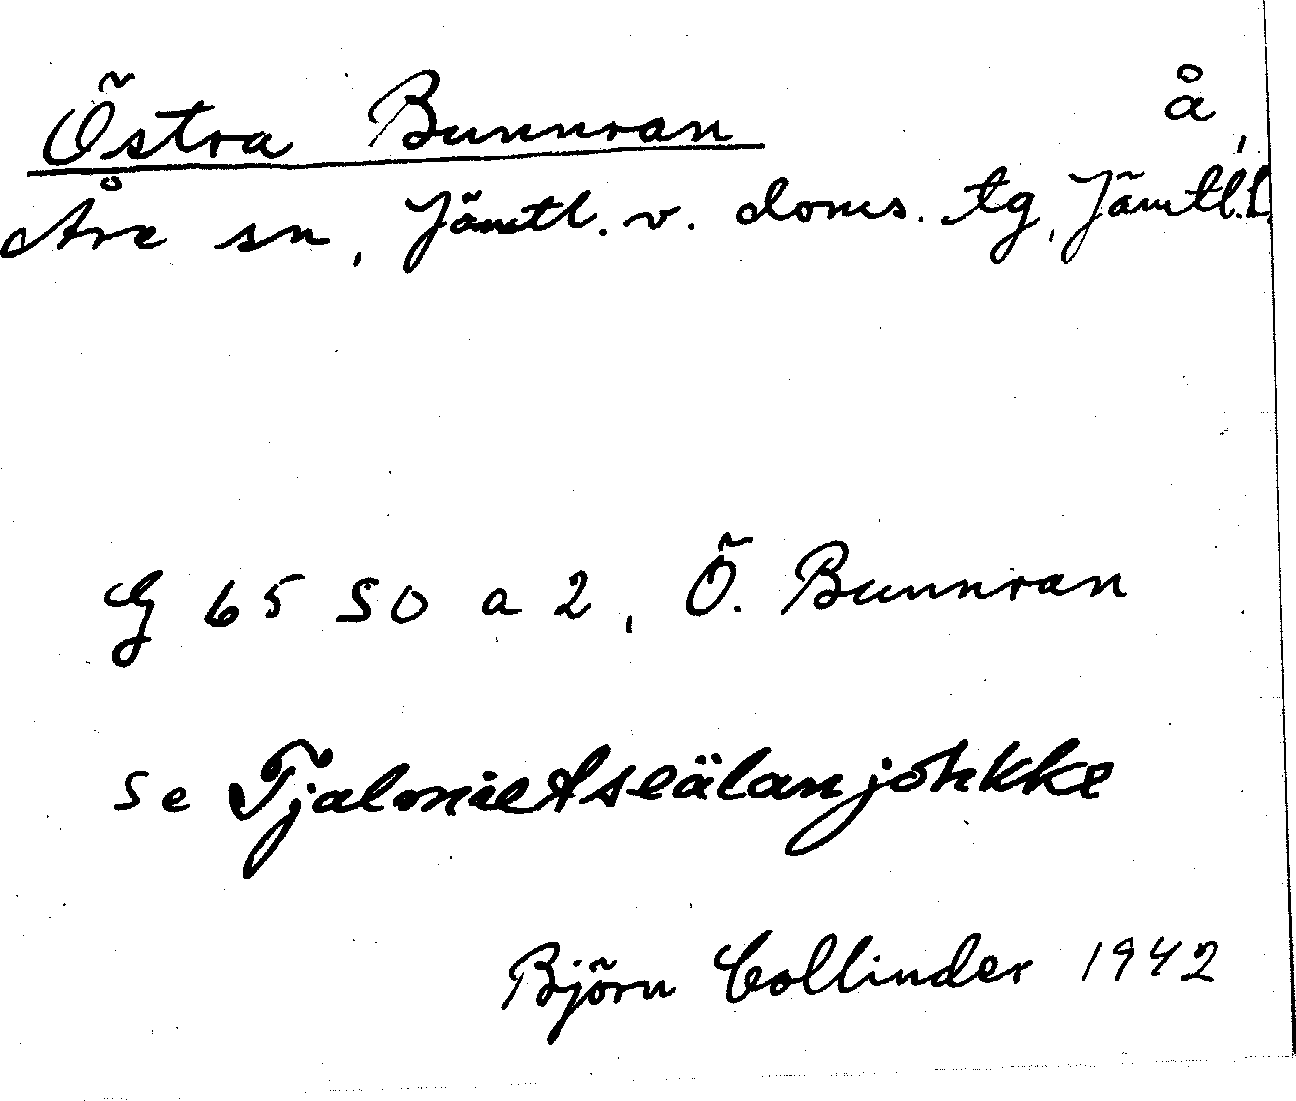 Östra Bunnran å,
Åre sn, Jämtl. v. doms. tg, Jämtl.l
G 65 50 a 2, Ö. Bunnran
se
Björn Collinder 1942